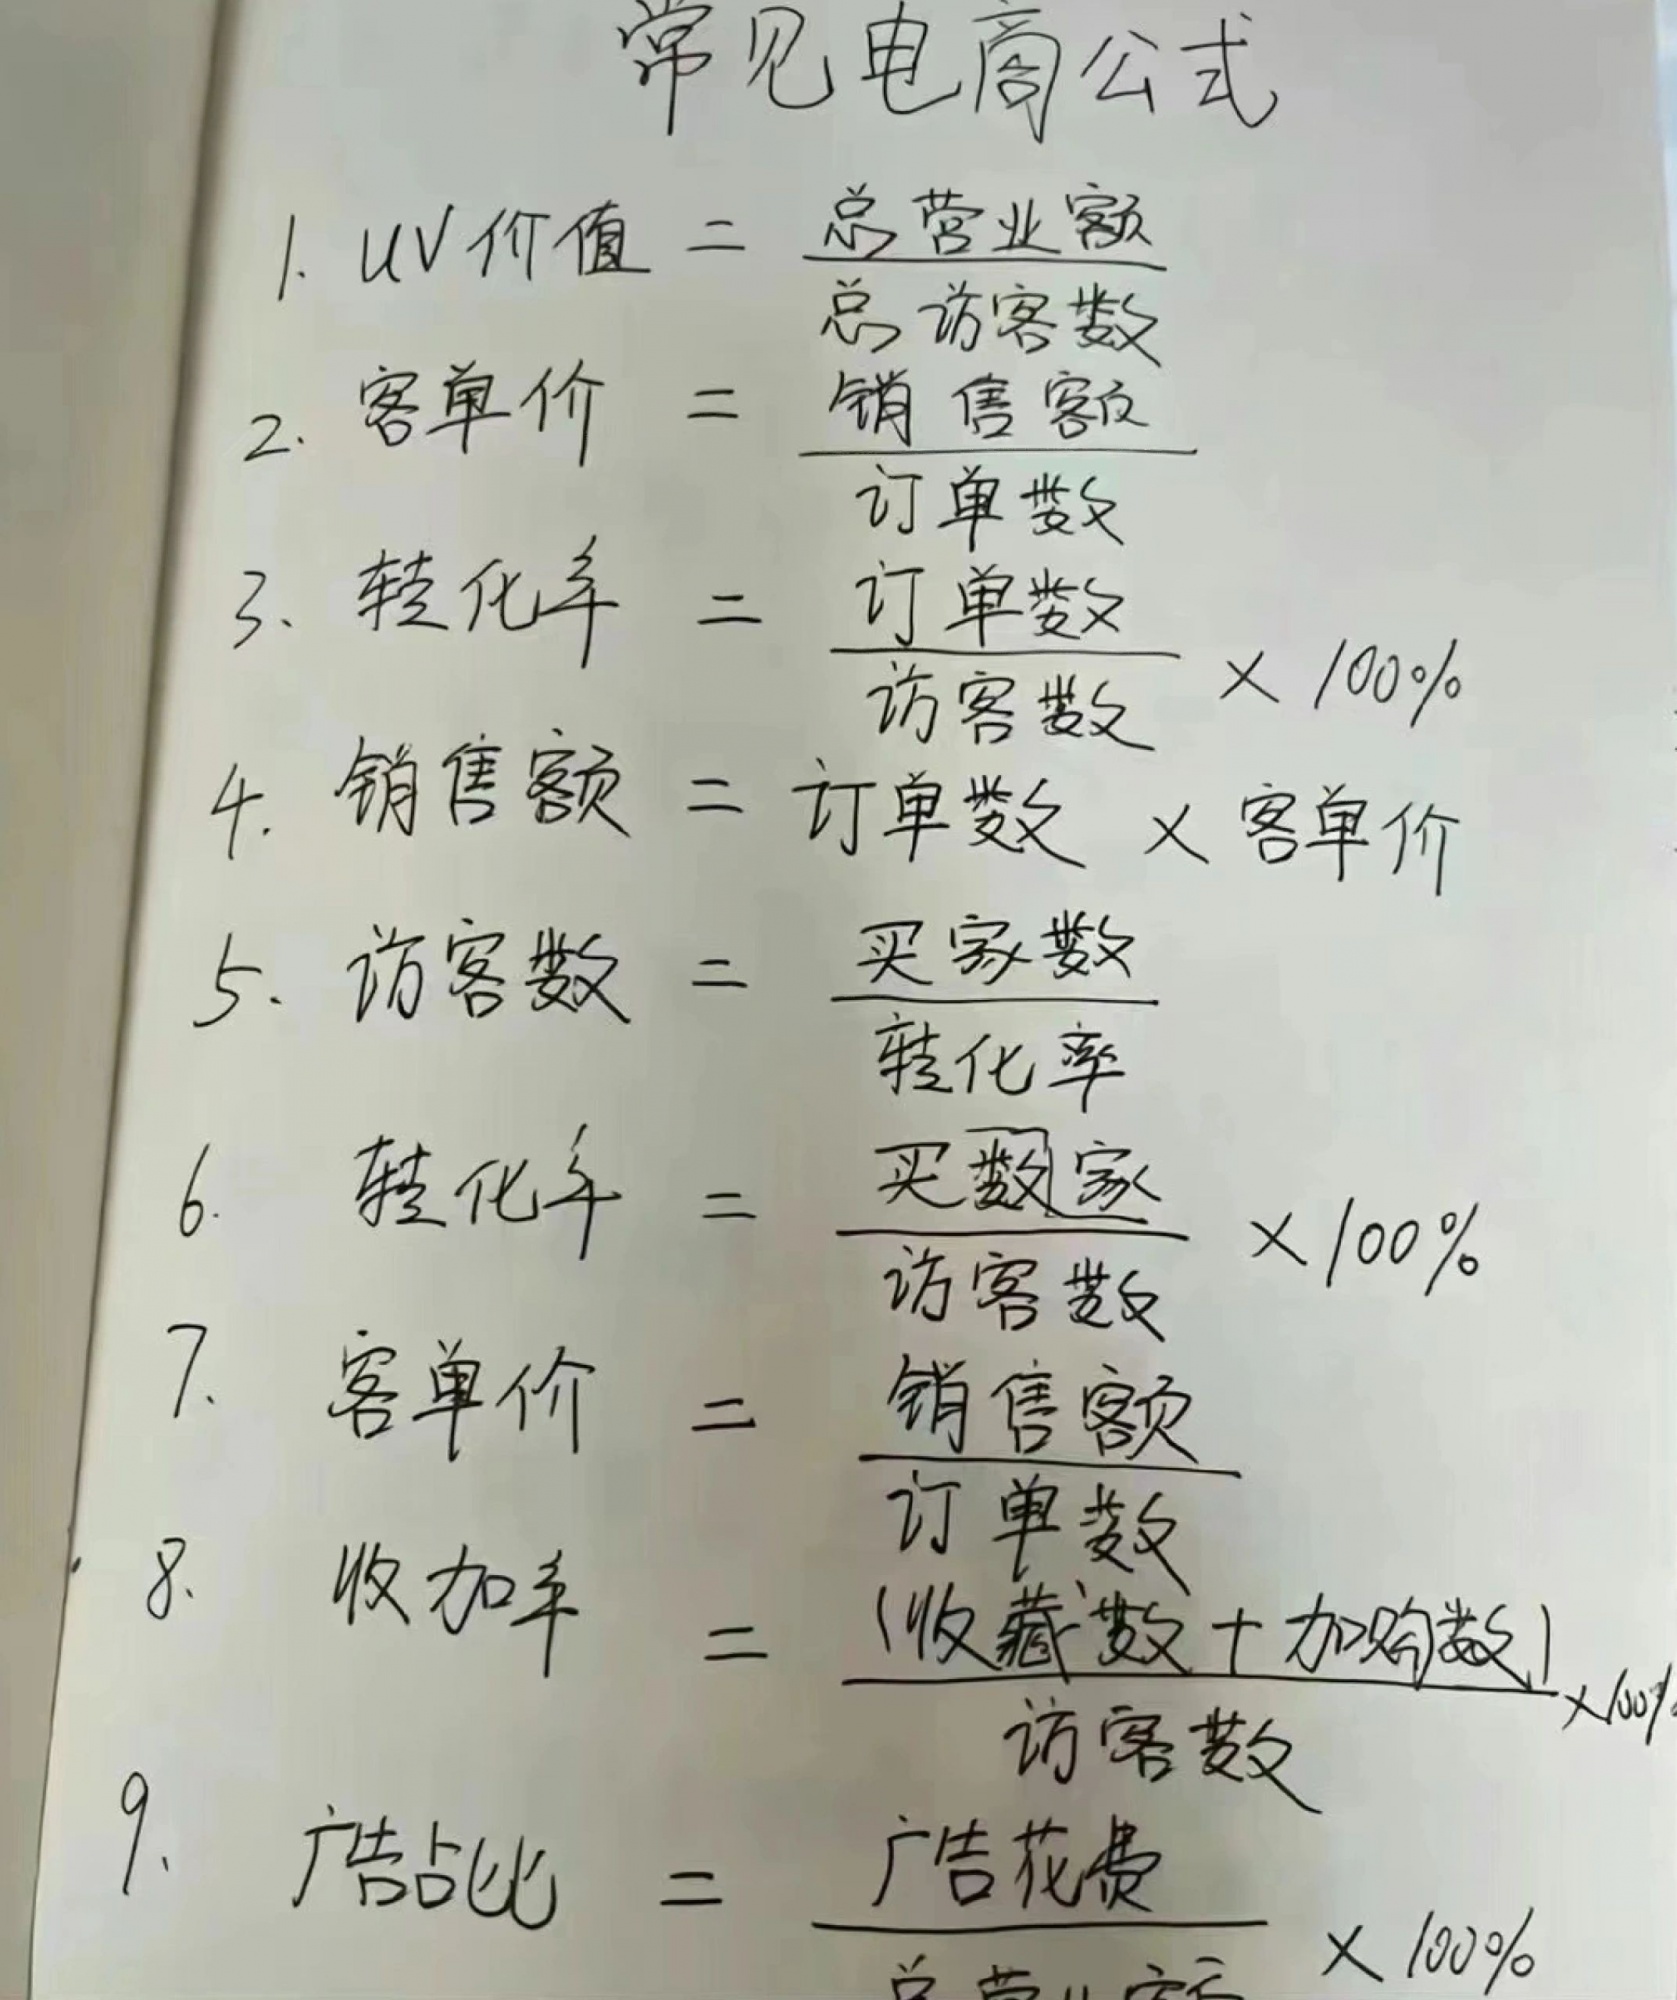 常见电商公式
1. UV价值 = 总营业额
总访客数
2. 客单价 = 销售额
订单数
3. 转化率 = 订单数 × 100%
访客数
4. 销售额 = 订单数 × 客单价
5. 访客数 = 买家数
转化率
6. 转化率 = 买数家 × 100%
访客数
7. 客单价 = 销售额
订单数
8. 收加率 = (收藏数+加购数) ×100%
访客数
9. 广告占比 = 广告花费 × 100%
总营业额